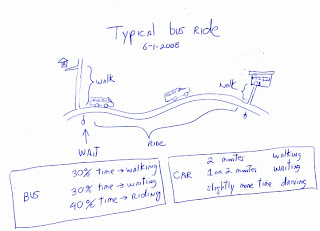 Typical bus ride
6-1-2008
walk
walk
RIDE
WAIT
BUS
30% time → walking
30% time → waiting
40% time → Riding
CAR
2 minutes walking
1 or 2 minutes waiting
slightly more time driving